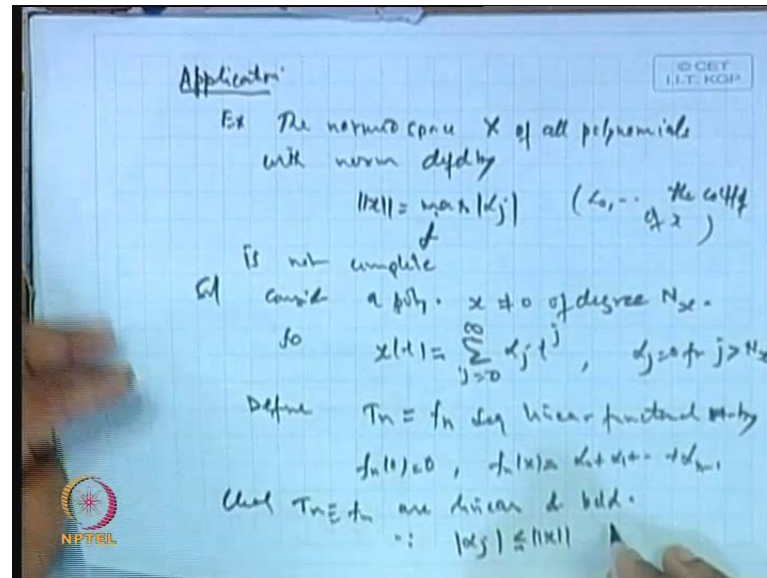 Application
© CET
I.I.T. KGP
Ex The normed space X of all polynomials
with norm dfd by
||x|| = max |αj| (α0, ... the coeff
j
of x)
is not complete
Sol Consid a poly. x ≠ 0 of degree Nx.
So x(t) = ∑ j=0 ∞ αj t^j , αj=0 for j > Nx
Define Tn ≡ fn seq linear functional by
fn(0)=0 , fn(x) = α0 + α1 + -- + αn-1
Tn ≡ fn are linear & bdd.
∵ |αj| ≤ ||x||
NPTEL